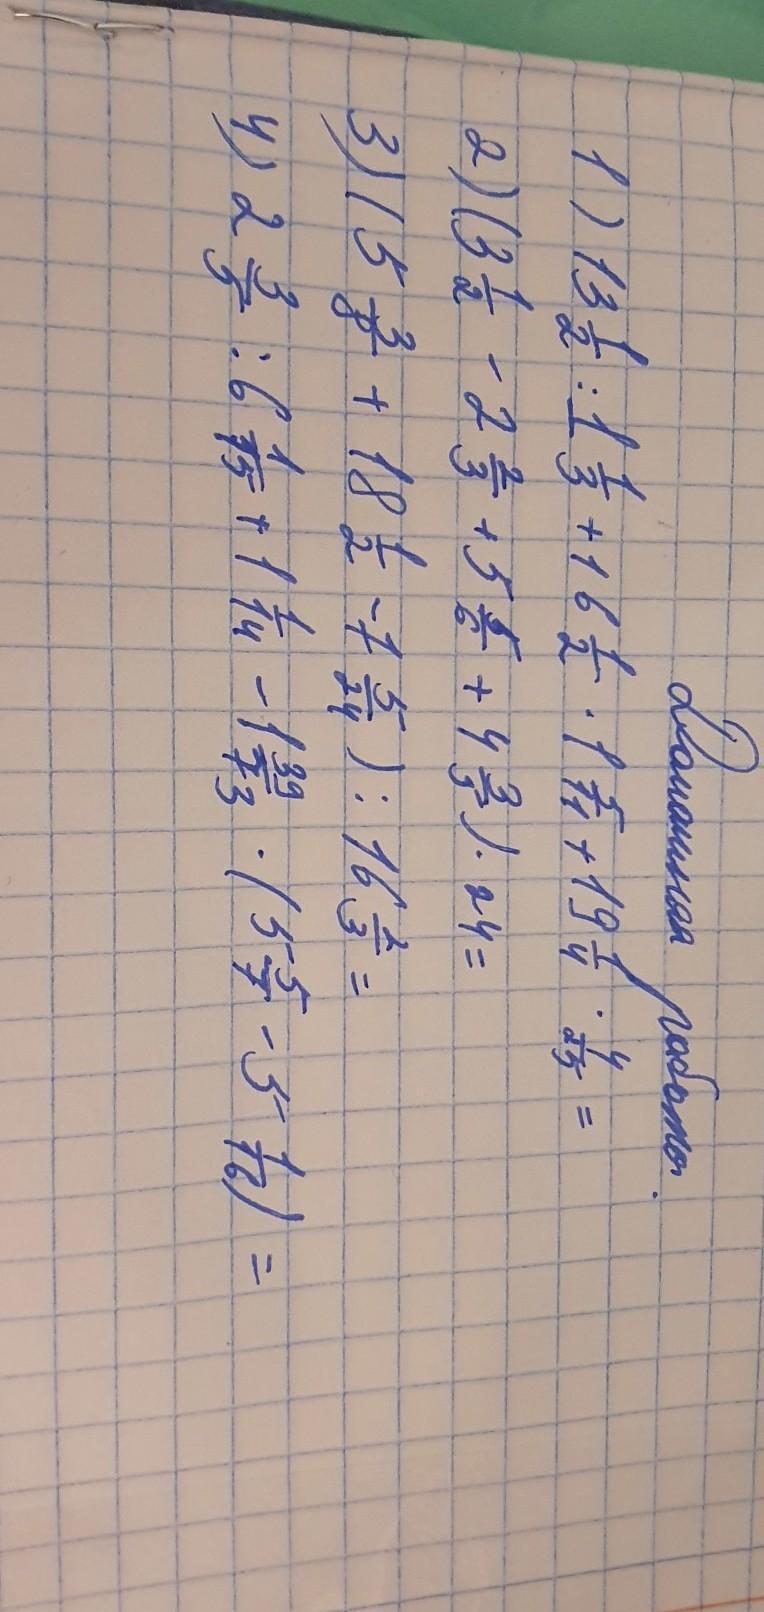 Домашняя работа.
1) 13 1/2 : 1 1/3 + 16 1/2 · 1 5/11 + 19 1/4 · 4/25 =
2) (3 1/2 - 2 2/3 + 5 5/6 + 4 3/5) · 24 =
3) (5 3/8 + 18 1/2 - 7 5/24) : 16 2/3 =
4) 2 3/5 : 6 1/15 + 1 1/14 - 1 39/73 · (5 5/7 - 5 1/16) =